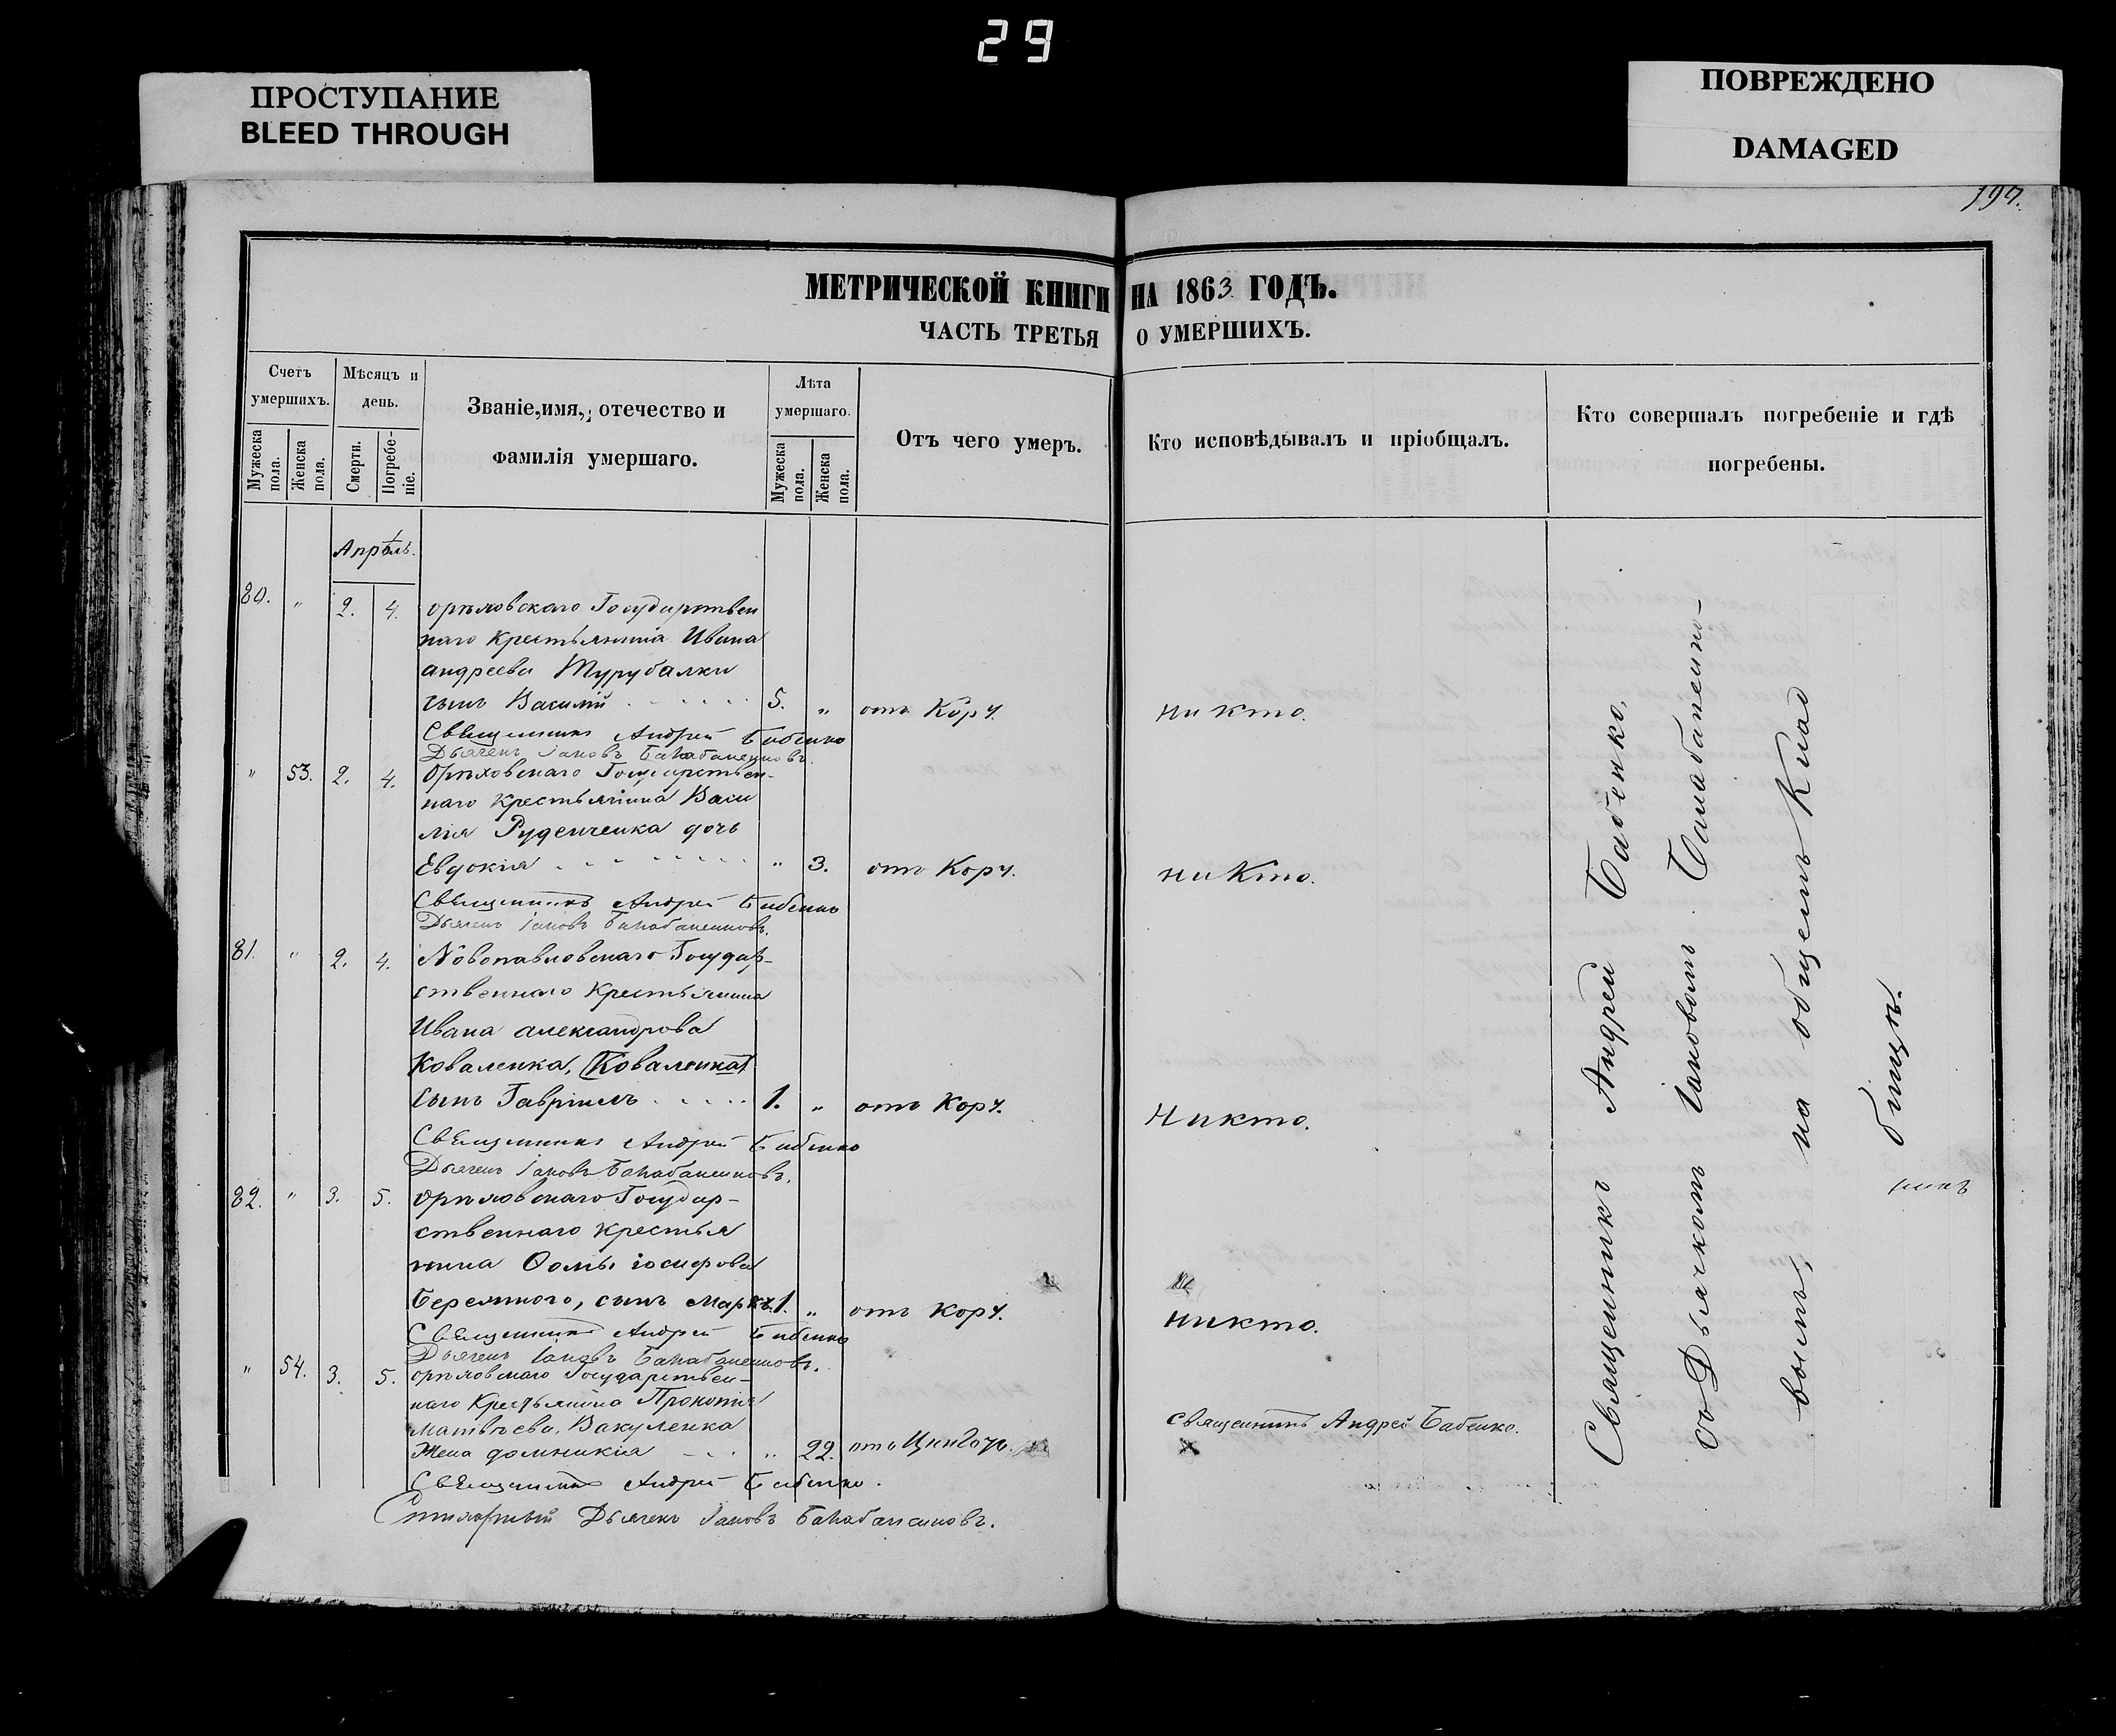 29
ПРОСТУПАНИЕ
BLEED THROUGH
ПОВРЕЖДЕНО
DAMAGED
197.
МЕТРИЧЕСКОЙ КНИГИ НА 1863 ГОДЪ.
ЧАСТЬ ТРЕТЬЯ О УМЕРШИХЪ.
Счетъ умершихъ.
Мужеска пола.
Женска пола.
Мѣсяцъ и день.
Смерти.
Погребеніе.
Званіе, имя, отечество и
фамилія умершаго.
Лѣта умершаго.
Мужеска пола.
Женска пола.
Отъ чего умеръ.
Кто исповѣдывалъ и пріобщалъ.
Кто совершалъ погребеніе и гдѣ
погребены.
Апрѣль.
80. " 2. 4. Орѣховскаго Государствен
наго крестьянина Ивана
андреева Турубалки
сынъ Василій 5. " отъ Корч. никто.
Священникъ Андрей Бабенко
Дьячекъ Іаковъ Балабаненковъ.
" 53. 2. 4. Орѣховскаго Государствен-
наго крестьянина Васи
лія Руденченка дочь
Евдокія " 3. отъ Корч. никто.
Священникъ Андрей Бабенко
Дьячекъ Іаковъ Балабаненковъ.
81. " 2. 4. Новопавловскаго Государ-
ственнаго крестьянина
Ивана александрова
Коваленка, (Коваленка)
сынъ Гавріилъ 1. " отъ Корч. Никто.
Священникъ Андрей Бабенко
Дьячекъ Іаковъ Балабаненковъ.
82. " 3. 5. Орѣховскаго Государ-
ственнаго крестья
нина Ѳомы іосифова
Беремного, сынъ Маркъ. 1. " отъ Корч. никто.
Священникъ Андрей Бабенко
Дьячекъ Іаковъ Балабаненковъ.
" 54. 3. 5. Орѣховскаго Государствен-
наго Крестьянина Прокопія
Матвѣева Вакуленка
Жена домникія " 22. отъ Цинготы. священникъ Андрей Бабенко.
Священникъ Андрей Бабенко.
Дьячекъ Іаковъ Балабаненковъ.
Священникъ Андрей Бабенко,
съ Дьячкомъ Іаковомъ Балабаненко-
вымъ, на общемъ Клад
бищѣ.